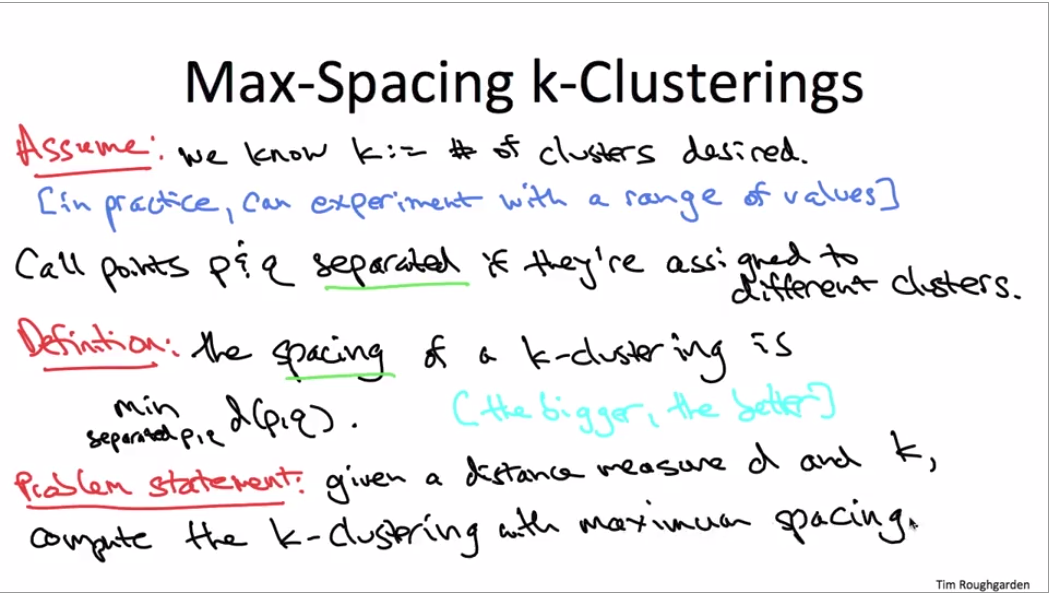 Max-Spacing k-Clusterings
Assume: we know k := # of clusters desired.
[in practice, can experiment with a range of values]
Call points p & q separated if they're assigned to
different clusters.
Definition: the spacing of a k-clustering is
min separated p,q d(p,q). [the bigger, the better]
Problem statement: given a distance measure d and k,
compute the k-clustering with maximum spacing.
Tim Roughgarden